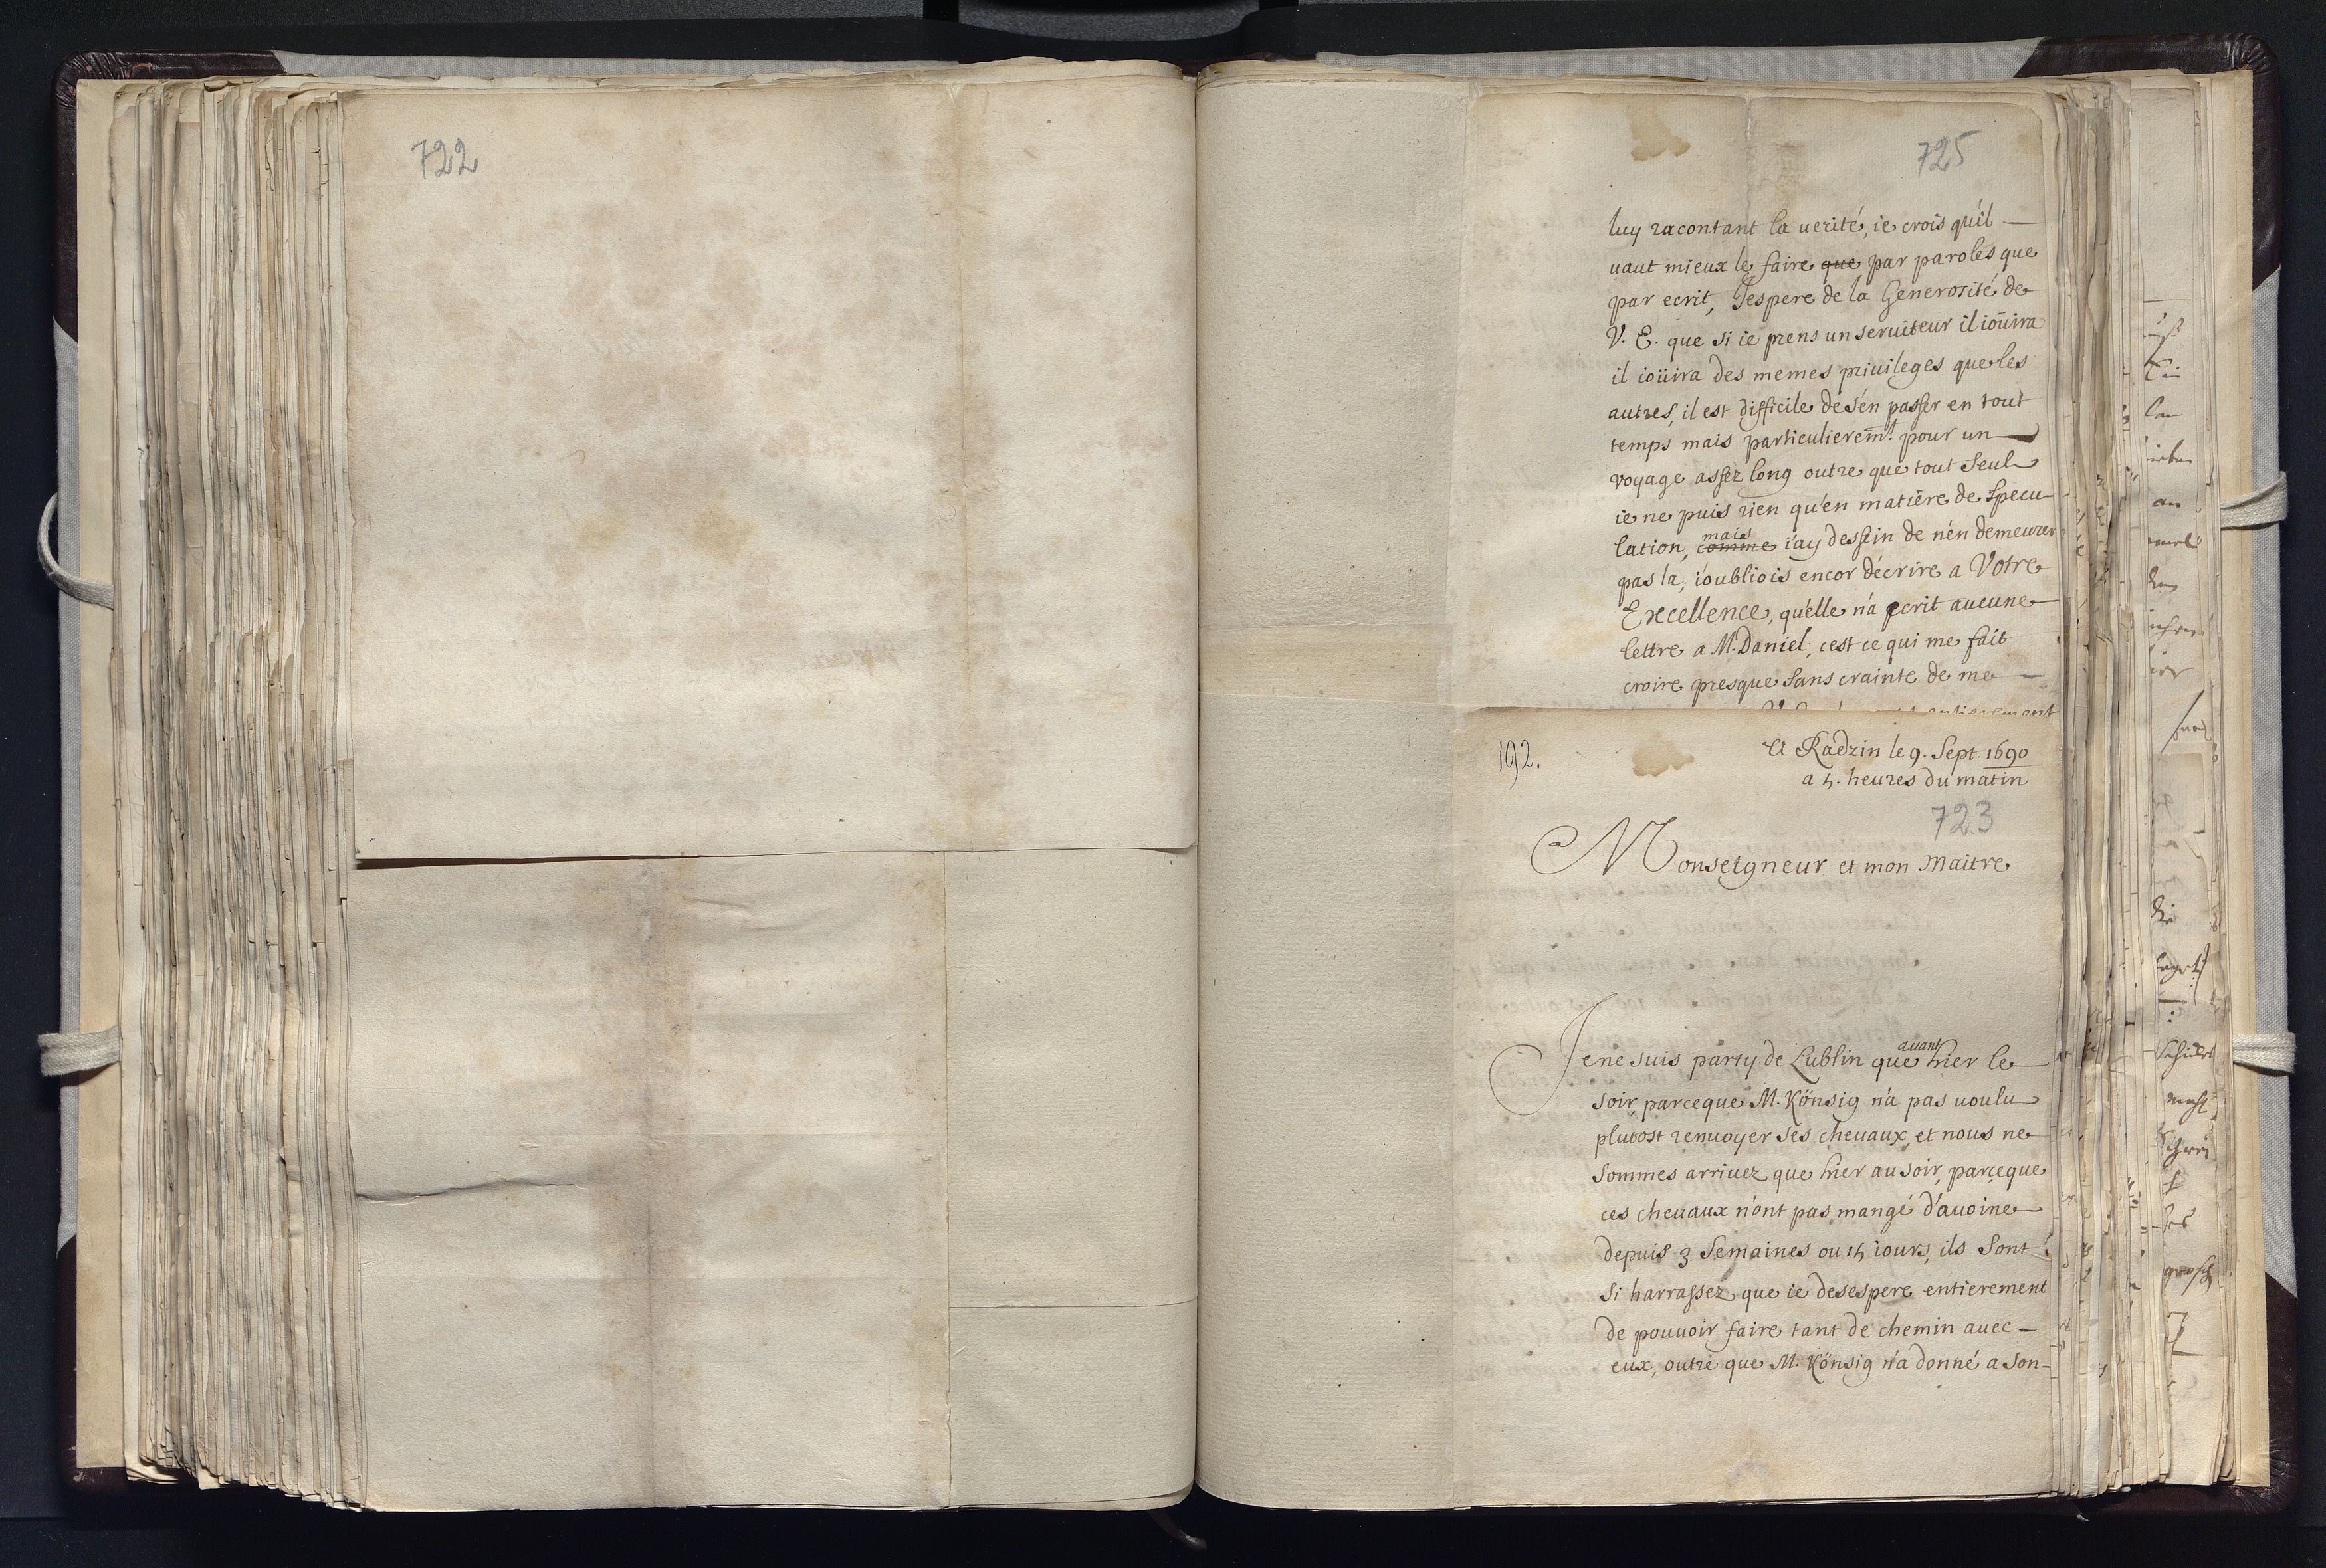 722
725
luy racontant la uerité, ie crois qu'il
uaut mieux le faire que par paroles que
par ecrit, J'espere de la Generosité de
V. E. que si ie prens un seruiteur il ioüira
il ioüira des memes priuileges que les
autres, il est difficile de s'en passer en tout
temps mais particulierem.t pour un
voyage assez long outre que tout seul
ie ne puis rien qu'en matiere de specu-
lation, comme mais i'ay dessein de n'en demeurer
pas la; i'oubliois encor d'ecrire a Votre
Excellence, qu'elle n'a ecrit aucune
lettre a M. Daniel, c'est ce qui me fait
croire presque sans crainte de me
entierement
192.
A Radzin le 9. Sept. 1690
a 5. heures du matin
723
Monseigneur et mon Maitre
Je ne suis party de Lublin que auant hier le
soir, parceque M. Könsig n'a pas uoulu
plutost renuoyer ses cheuaux, et nous ne
sommes arriuez que hier au soir, parceque
ces cheuaux n'ont pas mangé d'auoine
depuis 3 semaines ou 15 iours, ils sont
si harrassez que ie desespere entierement
de pouuoir faire tant de chemin auec
eux, outre que M. Könsig n'a donné a son-